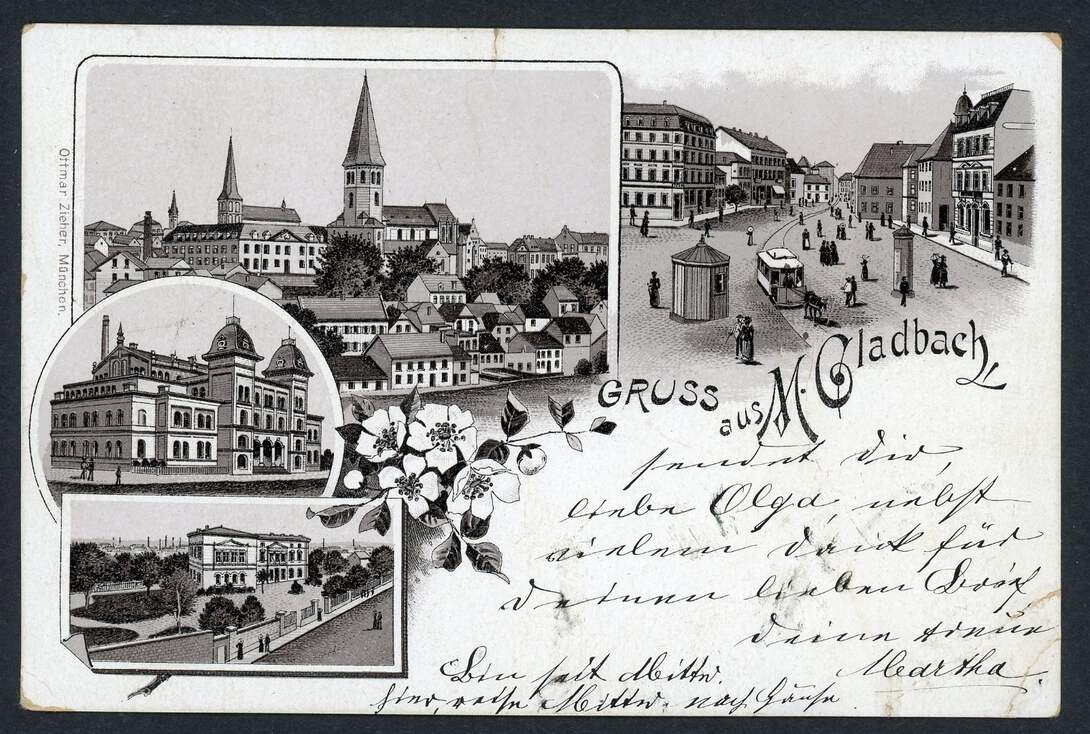 Ottmar Zieher, München.
GRUSS aus M. Gladbach
sendet Dir,
liebe Olga, nebst
vielem Dank für
Deinen lieben Brief
Deine treue
Martha.
Bin seit Mittw.
hier, reise Mittw. nach Hause